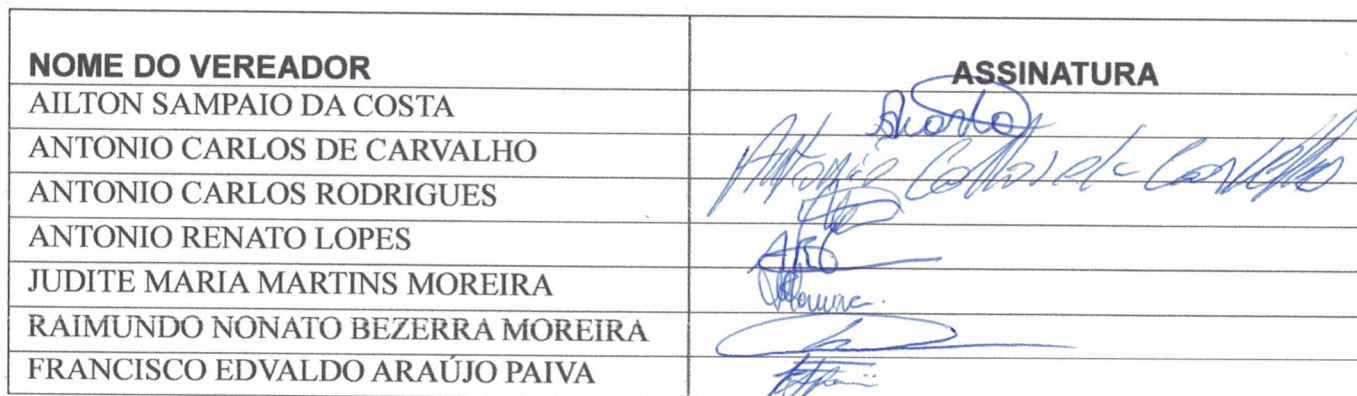 NOME DO VEREADOR ASSINATURA
AILTON SAMPAIO DA COSTA
ANTONIO CARLOS DE CARVALHO Antonio Carlos de Carvalho
ANTONIO CARLOS RODRIGUES
ANTONIO RENATO LOPES
JUDITE MARIA MARTINS MOREIRA
RAIMUNDO NONATO BEZERRA MOREIRA
FRANCISCO EDVALDO ARAÚJO PAIVA